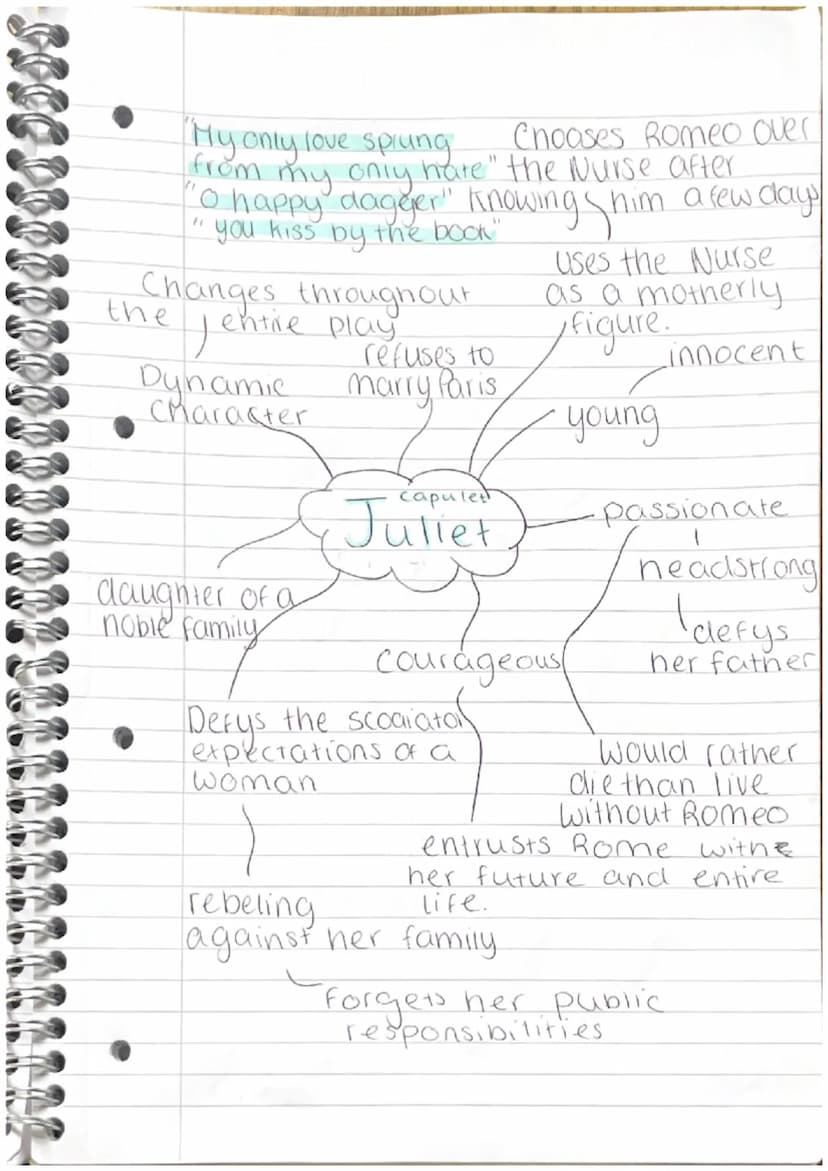 "My only love sprung
from my only hate"
"O happy dagger"
"you kiss by the book"
Chooses Romeo over
the Nurse after
knowing him a few days
uses the Nurse
as a motherly
figure.
Changes throughout
the entire play
Dynamic
Character
refuses to
marry Paris
innocent
young
Capulet
Juliet
passionate
headstrong
defys
her father
daughter of a
noble family
courageous
Defys the scoaiatal
expectations of a
woman
would rather
die than live
without Romeo
entrusts Rome with
her future and entire
life.
rebeling
against her family
forgets her public
responsibilities